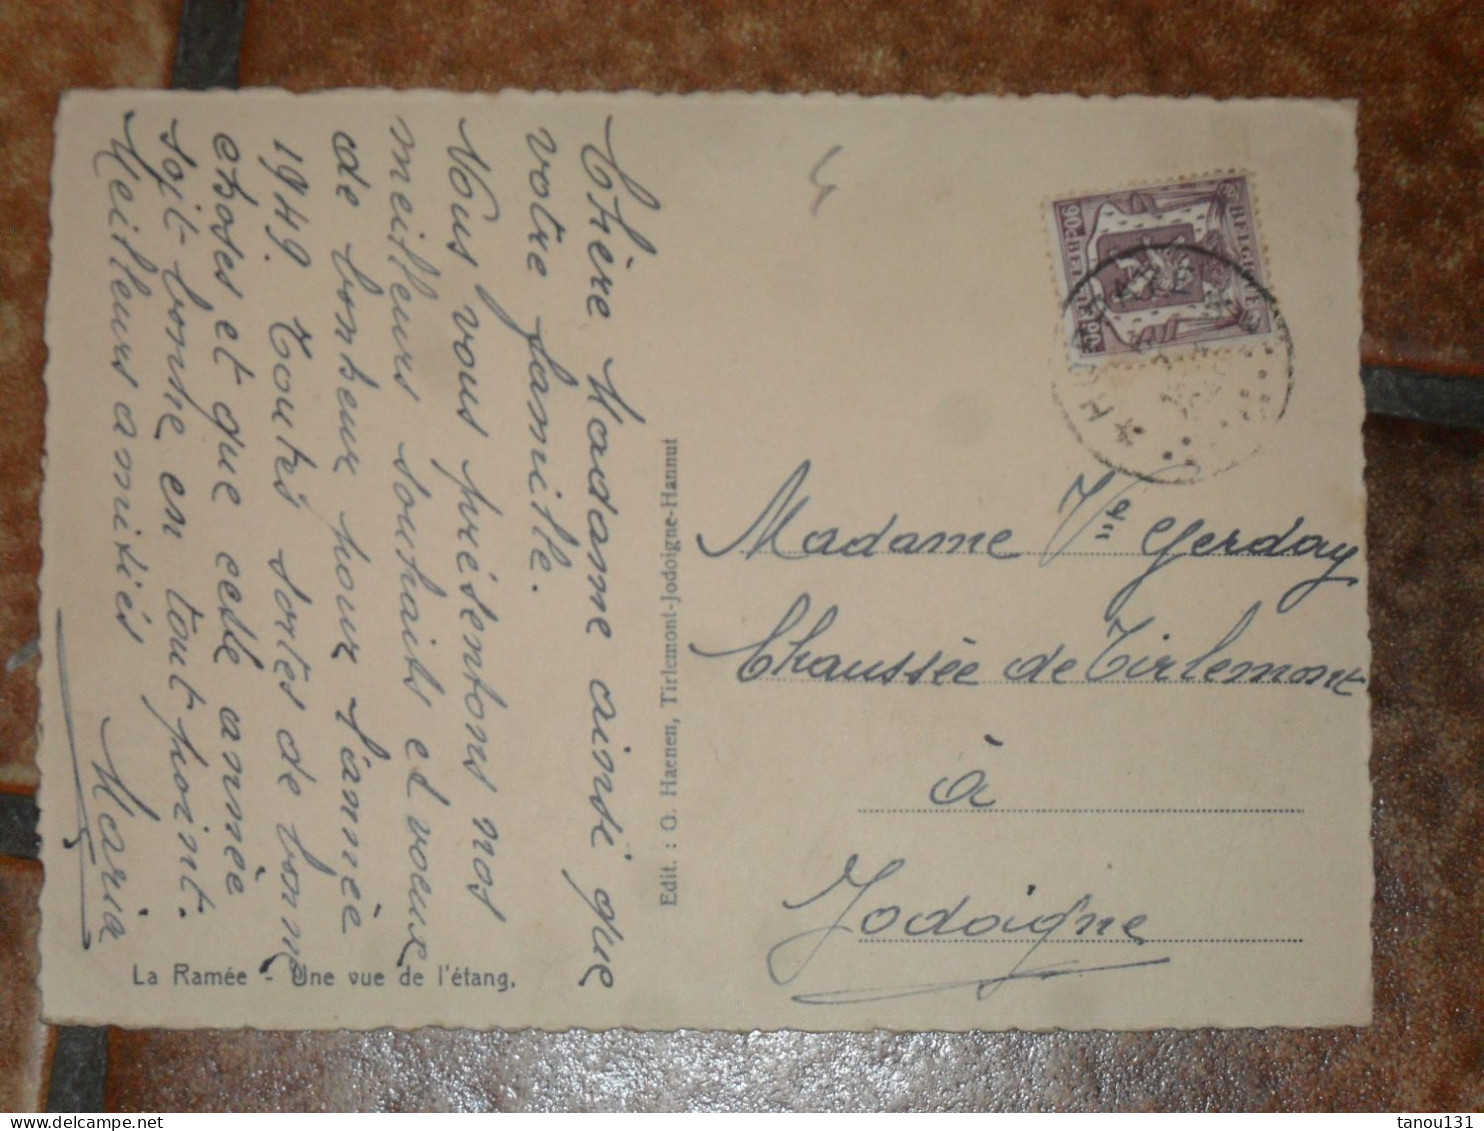 Chère Madame ainsi que
votre famille.
Nous vous présentons nos
meilleurs souhaits et voeux
de bonheur pour l'année
1949. Toutes sortes de bonne
choses et que cette année
soit bonne en tout point.
Meilleurs amitiés
Maria
La Ramée - Une vue de l'étang.
Edit. : O. Haenen, Tirlemont-Jodoigne-Hannut
BELGIQUE
90c BE
Madame Vve Gerday
Chaussée de Tirlemont
à
Jodoigne
tanou131